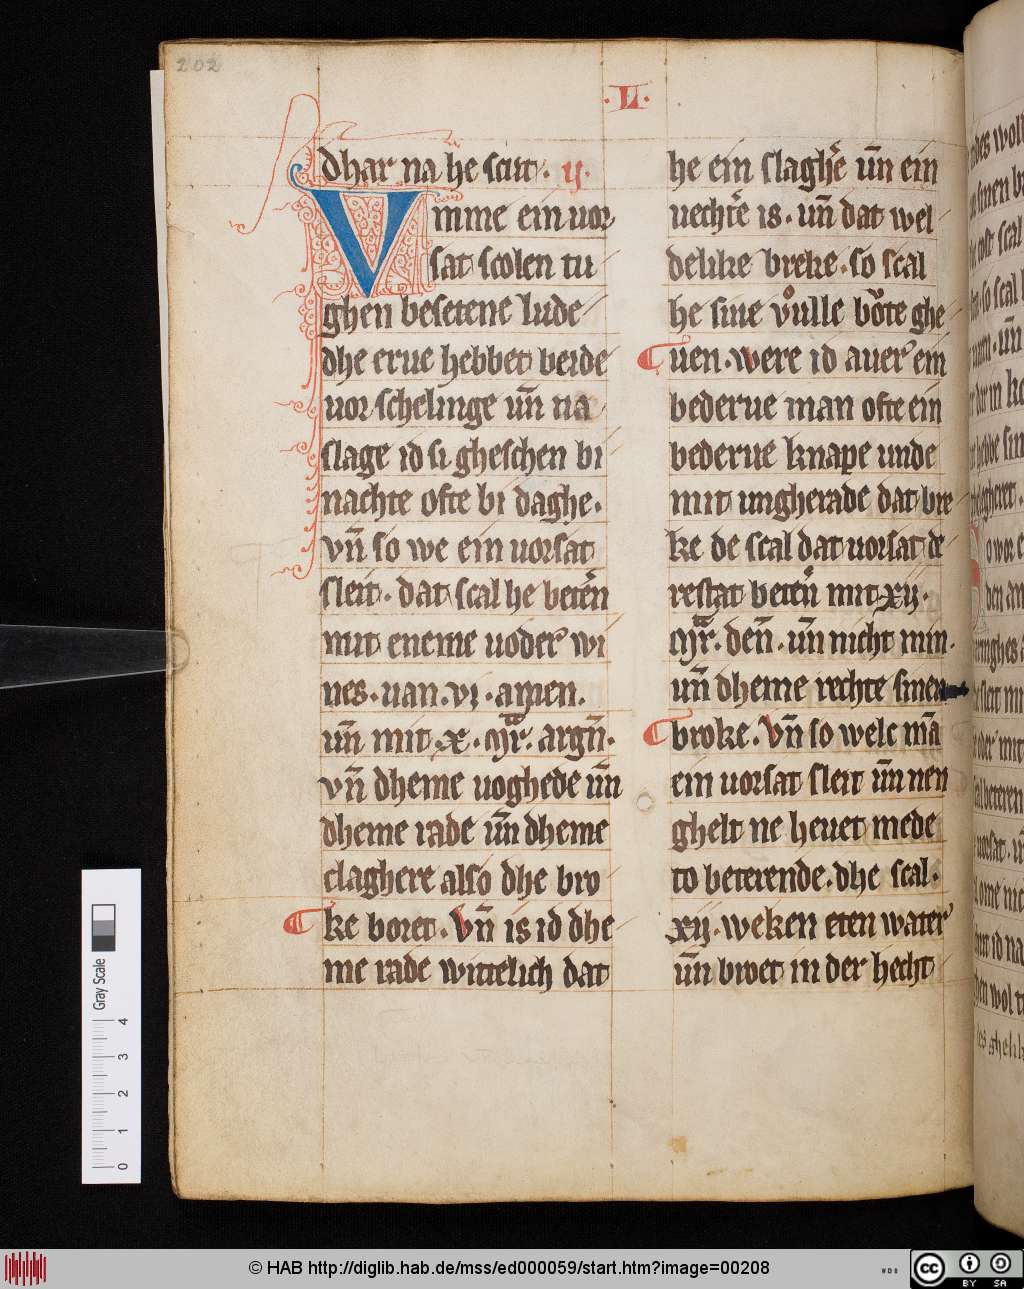 202
·L·
dhar na he scut· ij·
Vmme ein uor
sat scolen tu
ghen besetene lude
dhe erue hebbet beide
uorschelinge un̄ na
slage id si gheschen bi
nachte ofte bi daghe·
vn̄ so we ein uorsat
sleit· dat scal he beten̉
mit eneme uoder̉ wi
nes· uan· vj· amen.
un̄ mit x· mr̄· argn̄·
vn̄ dheme uoghede un̄
dheme rade un̄ dheme
claghere also dhe bro
ke boret· Vn̄ is id dhe
me rade wittelich dat
he ein slagher̉ un̄ ein
uechter̉ is· un̄ dat wel
delike breke· so scal
he sine vůlle bo̊te ghe
uen· were id auer̉ ein
bederue man ofte ein
bederue knape unde
mit ungherade dat bre
ke de scal dat uorsat de
restat beten̉ mit xij·
mr̄· den̄· un̄ nicht min·
un̄ dheme rechte sinen
broke· Vn̄ so welc mā
ein uorsat sleit un̄ nen
ghelt ne heuet mede
to beterende· dhe scal·
xij· weken eten water̉
un̄ broet in der hecht
Gray Scale
0 1 2 3 4
© HAB http://diglib.hab.de/mss/ed000059/start.htm?image=00208
WDB
CC BY SA